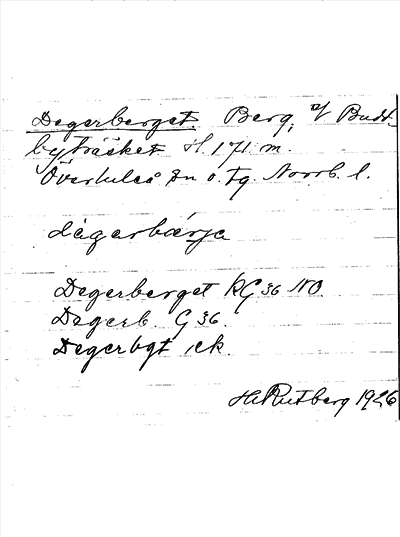 Degerberget. Berg, v/ Budt-
byträsket. H. 171 m.
Överluleå sn o. tg. Norrb. l.
dägarbærja
Degerberget KG 36 NO.
Degerb. G 36.
Degerbgt ek.
H. Rutberg 1926